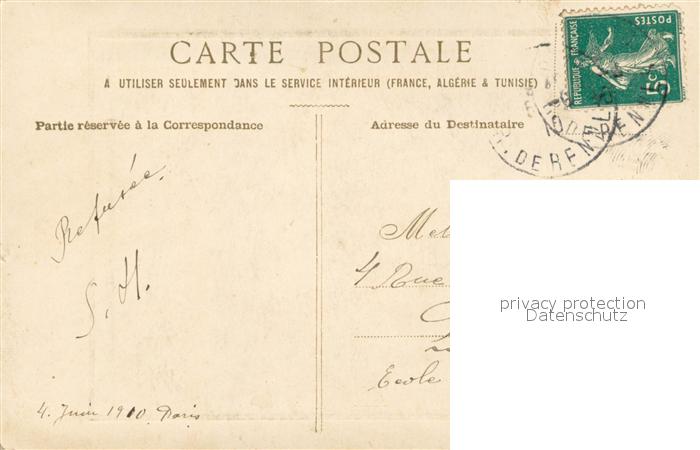 CARTE POSTALE
A UTILISER SEULEMENT DANS LE SERVICE INTÉRIEUR (FRANCE, ALGÉRIE & TUNISIE)
REPUBLIQUE FRANÇAISE
POSTES
5c
R. DE RENNES
Partie réservée à la Correspondance
Adresse du Destinataire
Refusée.
S. H.
4. Juin 1910. Paris
4 Rue
Ecole
privacy protection
Datenschutz